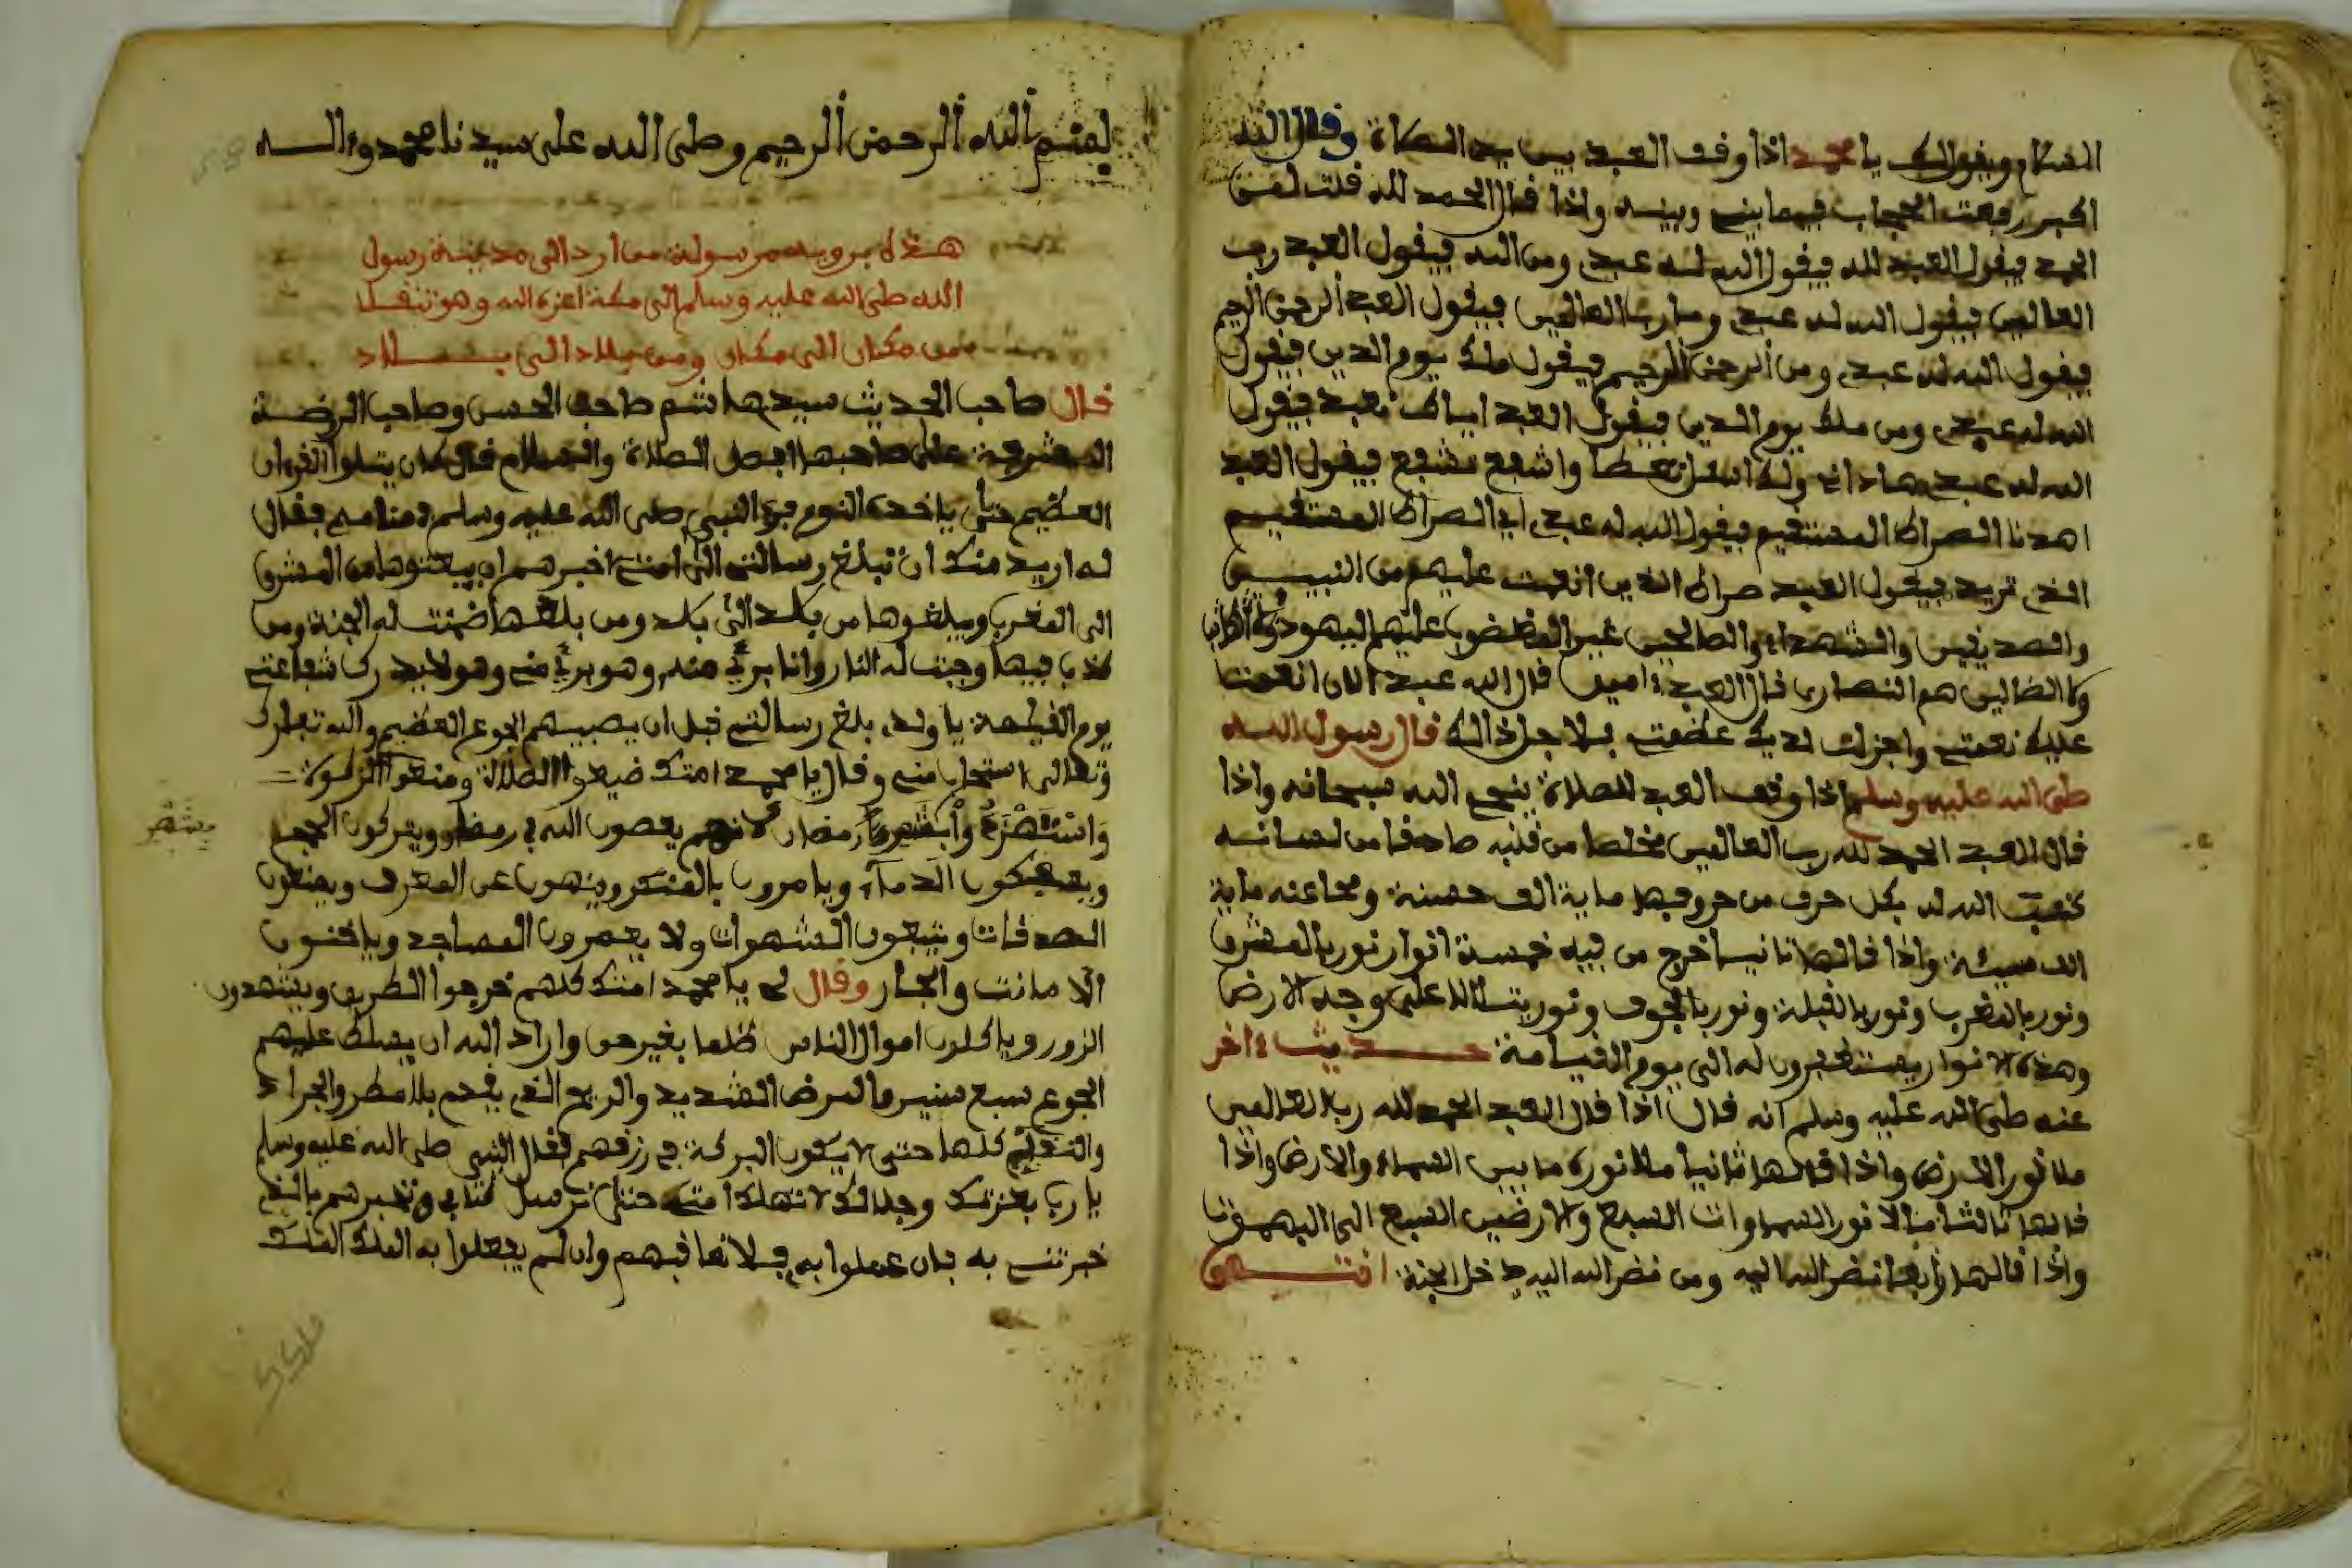 السلام ويقول لك يا محمد اذا وقف العبد بين يدي الصلاة وقال الله
اكبر رفعت الحجاب فيما بيني وبينه واذا قال الحمد لله قلت لمن
الحمد فيقول العبد لله فيقول الله له عبدي ومن الله فيقول العبد رب
العالمين فيقول الله له عبدي وما رب العالمين فيقول العبد الرحمن الرحيم
فيقول الله له عبدي ومن الرحمن الرحيم فيقول ملك يوم الدين فيقول
الله له عبدي ومن ملك يوم الدين فيقول العبد اياك نعبد فيقول
الله له عبدي هاذانا ولك اسئل تعطا واشفع تشفع فيقول العبد
اهدنا الصراط المستقيم فيقول الله له عبدي اي الصراط المستقيم
الذي تريد فيقول العبد صراط الذين انعمت عليهم من النبيين
والصديقين والشهداء والصالحين غير المغضوب عليهم اليهود
ولا الضالين هم النصارى فال العبد ءامين فال الله عبدي الان انعمت
عليك نعمتي واجزلت لديك عظمتي بلا جل ذالك فال رسول الله
صلى الله عليه وسلم اذا وقف العبد للصلاة ينجي الله سبحانه واذا
فال العبد الحمد لله رب العالمين مخلصا من قلبه صادقا من لسانه
كتب الله له بكل حرف من حروفها ماية الف حسنة ومحا عنه ماية
الف سيئة واذا قالها ثانيا خرج من فيه خمسة انوار نور بالمشرق
ونور بالمغرب ونور بالقبلة ونور بالجوف ونور يتلالا على وجه الارض
وهذه الانوار يستغفرون له الى يوم القيامة حديث ءاخر
عنه صلى الله عليه وسلم انه فال اذا فال العبد الحمد لله رب العالمين
ملا نوره الارض واذا قالها ثانيا ملا نوره ما بين السماء والارض واذا
قالها ثالثا ملا نور السماوات السبع والارضين السبع الى البهموت
واذا قالها رابعا نضر الله اليه ومن نضر الله اليه دخل الجنة انتهى
بسم الله الرحمن الرحيم وصلى الله على سيدنا محمد وءاله
هذه بروية مرسولة من ارد الى مدينة رسول
الله صلى الله عليه وسلم الى مكة اعزه الله وهو تنقل
من مكان الى مكان ومن بلاد الى بلاد
قال صاحب الحديث سيد هاشم صاحب الحسن وصاحب الروضة
المشرفة على صاحبها افضل الصلاة والسلام فال كان يتلوا القرءان
العظيم حتى ياخذه النوم فرءا النبي صلى الله عليه وسلم في منامه فقال
له اريد منك ان تبلغ رسالتي الى امتي اخبرهم ان يبعثوها من المشرق
الى المغرب ويبلغوها من بلد الى بلد ومن بلغها ضمنت له الجنة ومن
كذب فيها وجبت له النار وانا بريء منه وهو بريء مني وهو لا يدرك شفاعتي
يوم القيامة يا ولدي بلغ رسالتي قبل ان يصيبهم الجوع العظيم والله تبارك
وتعالى استحاب مني وفال يا محمد امتك ضيعوا الصلاة ومنعوا الزكوة
رمضان لانهم يعصون الله في رمضان ويتركون الجمعا
ويسفكون الدماء ويامرون بالمنكر وينهون عن المعرف ويمنعون
الصدقات ويتبعون الشهوات ولا يعمرون المساجد وياخذون
الامانت والجار وقال لي يا محمد امتك كلهم خرجوا الطريق ويشهدون
الزور وياكلون اموال الناس ظلما بغير حق واراد الله ان يسلط عليهم
الجوع سبع سنين والمرض الشديد والريح الذي يقدم بلا مطر والجراد
كلها حتى لا يكون البركة في رزقهم فقال النبي صلى الله عليه وسلم
يا رب بعزتك وجلالك لا تهلك امتي حتى نرسل كتابي ونخبرهم بالذي
خبرتني به فان عملوا به فلا تعاقبهم وان لم يعملوا به الملك الملك